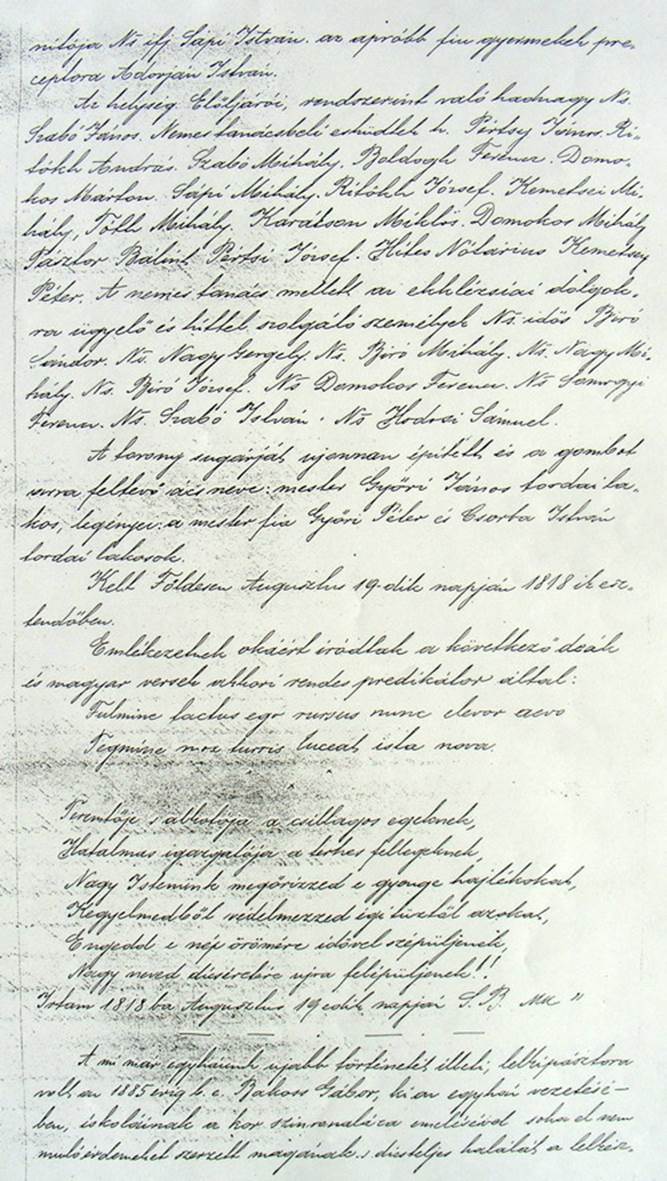 nitója Ns ifj Sápi István. az apróbb fiu gyermekek pre-
ceptora Adorján István.
Az helység Elöljárói, rendszerint való hadnagy Ns.
Szabó János. Nemes tanácsbeli esküdtek h. Pértsy János. Ri-
tókh András. Szabó Mihály. Boldogh Ferencz. Domo-
kos Márton. Sápi Mihály. Ritókh József. Kemetsei Mi-
hály, Tóth Mihály. Karátson Miklós. Domokos Mihály
Pásztor Bálint Pértsi József. Hites Nótárius Kemetsey
Péter. A nemes tanács mellett az ekklézsiai dolgok-
ra ügyelő és hittel szolgáló személyek Ns. idős Biró
Sándor. Ns. Nagy Gergely. Ns. Biró Mihály. Ns. Nagy Mi-
hály. Ns. Biró József. Ns Domokos Ferencz. Ns Somogyi
Ferencz. Ns. Szabó István. Ns Hodosi Sámuel.
A torony sugárját ujonnan épitett és a gombot
arra feltevő ács neve: mester Győri János tordai la-
kos, legényei: a mester fia Győri Péter és Csorba István
tordai lakosok.
Kelt Földesen Augusztus 19-dik napján 1818 ik esz-
tendőben.
Emlékezetnek okáért iródtak a következő deák
és magyar versek akkori rendes predikátor által:
Fulmine tactus ego rursus nunc elevor aevo
Tegmine mox turris luceat ista nova.
Teremtője s alkotója a csillagos egeknek,
Hatalmas igazgatója a terhes fellegeknek,
Nagy Istenünk megőrizzed e gyenge hajlékokat,
Kegyelmedből védelmezzed égi tüztől azokat,
Engedd e nép örömére idővel szépüljenek,
Nagy neved dicséretére ujra felépüljenek!!
Irtam 1818 ba Augusztus 19 edik napján S. B. Mk "
A mi már egyházunk ujabb történetét illeti, lelkipásztora
volt az 1885 évig b. e. Rakoss Gábor, ki az egyház vezetésé-
ben, iskoláinak a kor szinvonalára emelésével soha el nem
muló érdemeket szerzett magának s diesteljes halálát a lelkész-